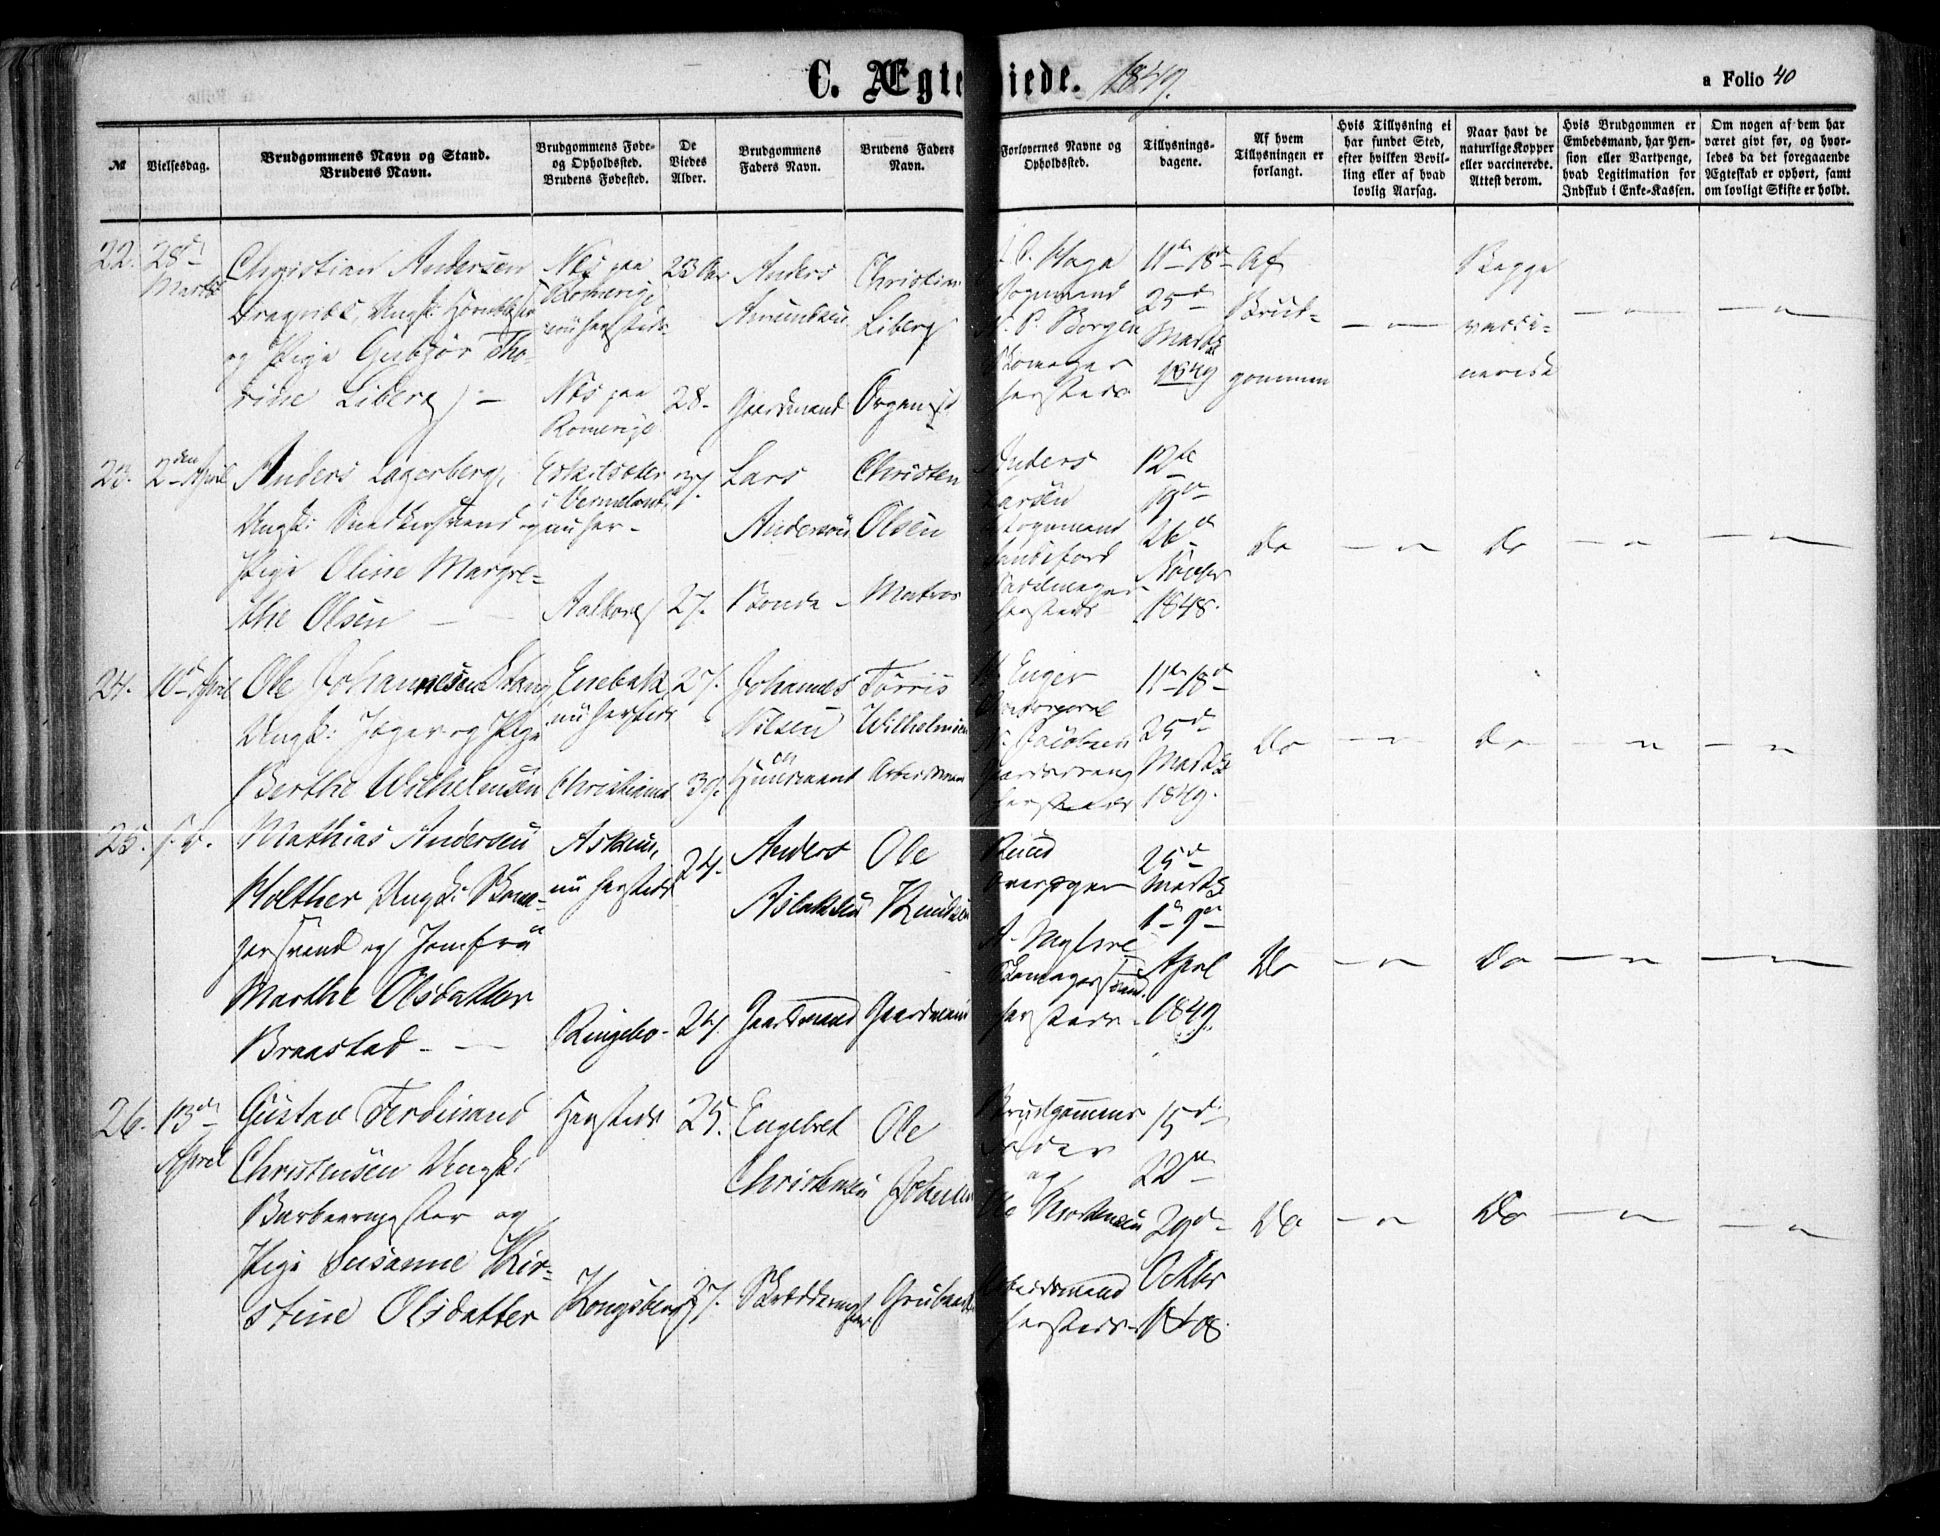 C. Ægteviede. 1849.
a Folio 40
№
Vielsesdag.
Brudgommens Navn og Stand.
Brudens Navn.
Brudgommens Føde-
og Opholdssted.
Brudens Fødested.
De
Viedes
Alder.
Brudgommens
Faders Navn.
Brudens Faders
Navn.
Forlovernes Navne og
Opholdssted.
Tillysnings-
dagene.
Af hvem
Tillysningen er
forlangt.
Hvis Tillysning ei
har fundet Sted,
efter hvilken Bevil-
ling eller af hvad
lovlig Aarsag.
Naar havt de
naturlige Kopper
eller vaccinerede.
Attest derom.
Hvis Brudgommen er
Embedsmand, har Pen-
sion eller Vartpenge,
hvad Legitimation for
Indskud i Enke-Kassen.
Om nogen af dem har
været givt før, og hvor-
ledes da det foregaaende
Ægteskab er ophørt, samt
om lovligt Skifte er holdt.
22.
28de
Marts
Christian Andersen
Dragvik, Ungk:
og Pige Gubjør Tho-
rine Liberg -
Nes paa
Romerige
nu hersteds
Nes paa
Romerige
23 Aar
28.
Anders
Amundsen
Gaardmand
Christian
Liberg
Organist
Haga
P. Borgen
Skomager
hersteds
11te 18de
25de
Marts
1849
Af
Brud-
gommen
Begge
vacci-
nerede
23.
2den April
Anders Lagerberg,
Ungk: Snedkersvend og
Pige Oline Margre-
the Olsen
i Vermeland
nu her -
Aalborg
37.
27.
Lars
Andersen
Bonde -
Christen
Olsen
Matros
Anders
Larsen
hersteds
12te
19de
26de
Novbr
1848.
Do
Do
24.
10de April
Ole Johannesen Stang
Ungk: Jæger og Pige
Berthe Wilhelmsen
Enebak
nu hersteds
Christiania
27.
39.
Johannes
Nilsen
Huusmand
Torris
Wilhelmsen
Arbeidsmand
Enger
Jacobsen
hersteds
11te 18de
25de
Marts
1849.
Do
Do
25.
s. D.
Mathias Andersen
Holther Ungk: Skoma-
gersvend og Jomfru
Marthe Olsdatter
Braastad -
Askim,
nu hersteds
Ringebo -
24.
24.
Anders
Aslaksen
Gaardmand
Ole
Knudsen
Gaardmand
Ruud
A. Myhre
Skomagersvend
hersteds -
25de
Marts
1ste 9de
April
1849.
Do
Do
26.
13de
April
Gustav Ferdinand
Christensen Ungk:
Barbeermester og
Pige Susanne Kir-
stine Olsdatter
Hersteds
Kongsberg
25.
27.
Engebret
Christensen
Skreddermester
Ole
Johnsen
Brudgommens
Fader
og
Ole
Arbeidsmand
hersteds
15de
22de
29de
Octbr
1848.
Do
Do